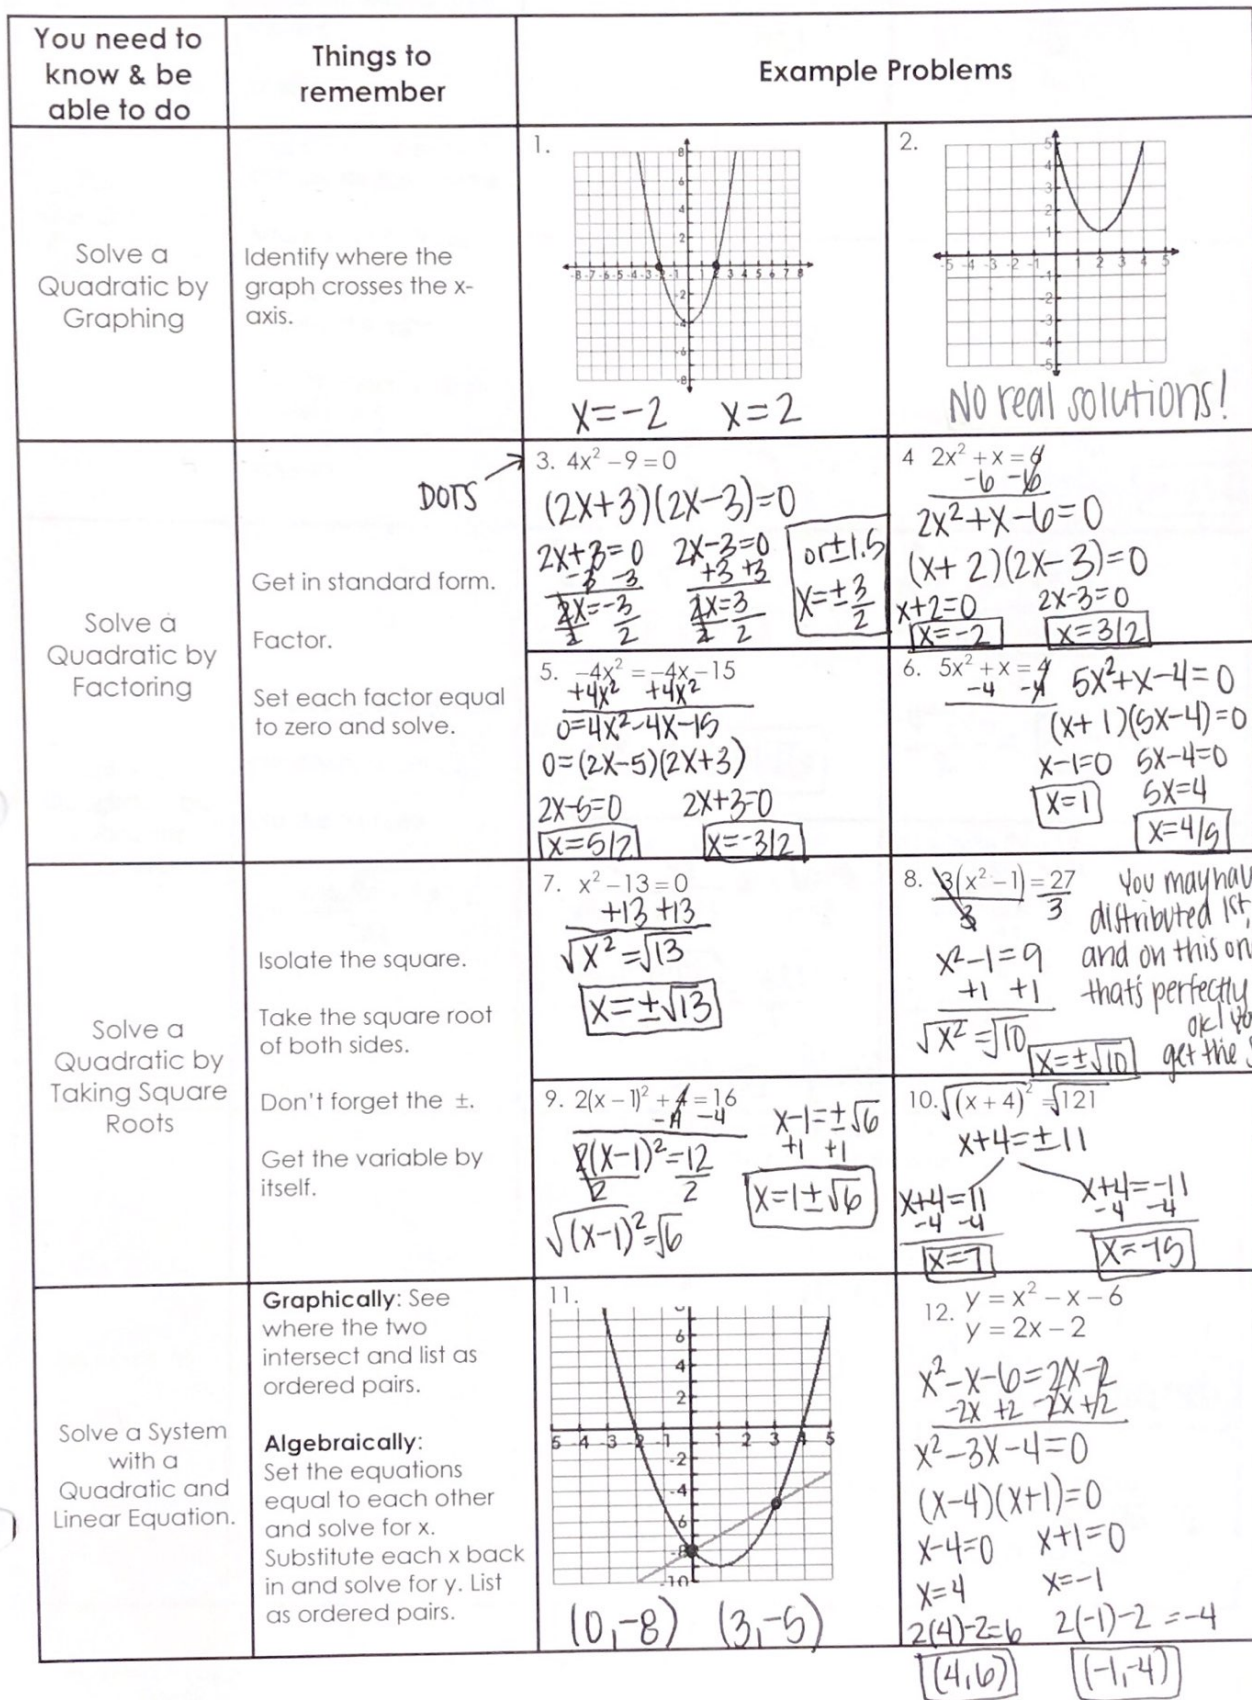 You need to
know & be
able to do
Things to
remember
Example Problems
Solve a
Quadratic by
Graphing
Identify where the
graph crosses the x-
axis.
1.
8
6
4
2
-8 -7 -6 -5 -4 -3 -2 -1 1 2 3 4 5 6 7 8
-2
-4
-6
-8
x=-2 x=2
2.
5
4
3
2
1
-5 -4 -3 -2 -1 1 2 3 4 5
-1
-2
-3
-4
-5
No real solutions!
Solve a
Quadratic by
Factoring
Get in standard form.
Factor.
Set each factor equal
to zero and solve.
DOTS
3. 4x² – 9 = 0
(2x+3)(2x-3)=0
2x+3=0 2x-3=0
-3 -3 +3 +3
2x=-3 2x=3
2 2 2 2
or ±1.5
x=±3/2
4 2x² + x = 6
-6 -6
2x²+x-6=0
(x+2)(2x-3)=0
x+2=0 2x-3=0
x=-2 x=3/2
5. –4x² = –4x – 15
+4x² +4x²
0=4x²-4x-15
0=(2x-5)(2x+3)
2x-5=0 2x+3=0
x=5/2 x=-3/2
6. 5x² + x = 4
-4 -4
5x²+x-4=0
(x+1)(5x-4)=0
x-1=0 5x-4=0
x=1 5x=4
x=4/5
Solve a
Quadratic by
Taking Square
Roots
Isolate the square.
Take the square root
of both sides.
Don't forget the ±.
Get the variable by
itself.
7. x² – 13 = 0
+13 +13
√x² = √13
x=±√13
8. 3(x² – 1) = 27
3 3
x²-1=9
+1 +1
√x² = √10
x=±√10
You may hav
distributed 1st,
and on this on
that's perfectly
ok! yo
get the
9. 2(x – 1)² + 4 = 16
-4 -4
2(x-1)²=12
2 2
√(x-1)²=√6
x-1=±√6
+1 +1
x=1±√6
10. √(x + 4)² = √121
x+4=±11
x+4=11 x+4=-11
-4 -4 -4 -4
x=7 x=-15
Solve a System
with a
Quadratic and
Linear Equation.
Graphically: See
where the two
intersect and list as
ordered pairs.
Algebraically:
Set the equations
equal to each other
and solve for x.
Substitute each x back
in and solve for y. List
as ordered pairs.
11.
6
4
2
5 -4 -3 -2 -1 1 2 3 4 5
-2
-4
6
-8
-10
(0,-8) (3,-5)
12. y = x² – x – 6
y = 2x – 2
x²-x-6=2x-2
-2x +2 -2x +2
x²-3x-4=0
(x-4)(x+1)=0
x-4=0 x+1=0
x=4 x=-1
2(4)-2=6 2(-1)-2=-4
(4,6) (-1,-4)